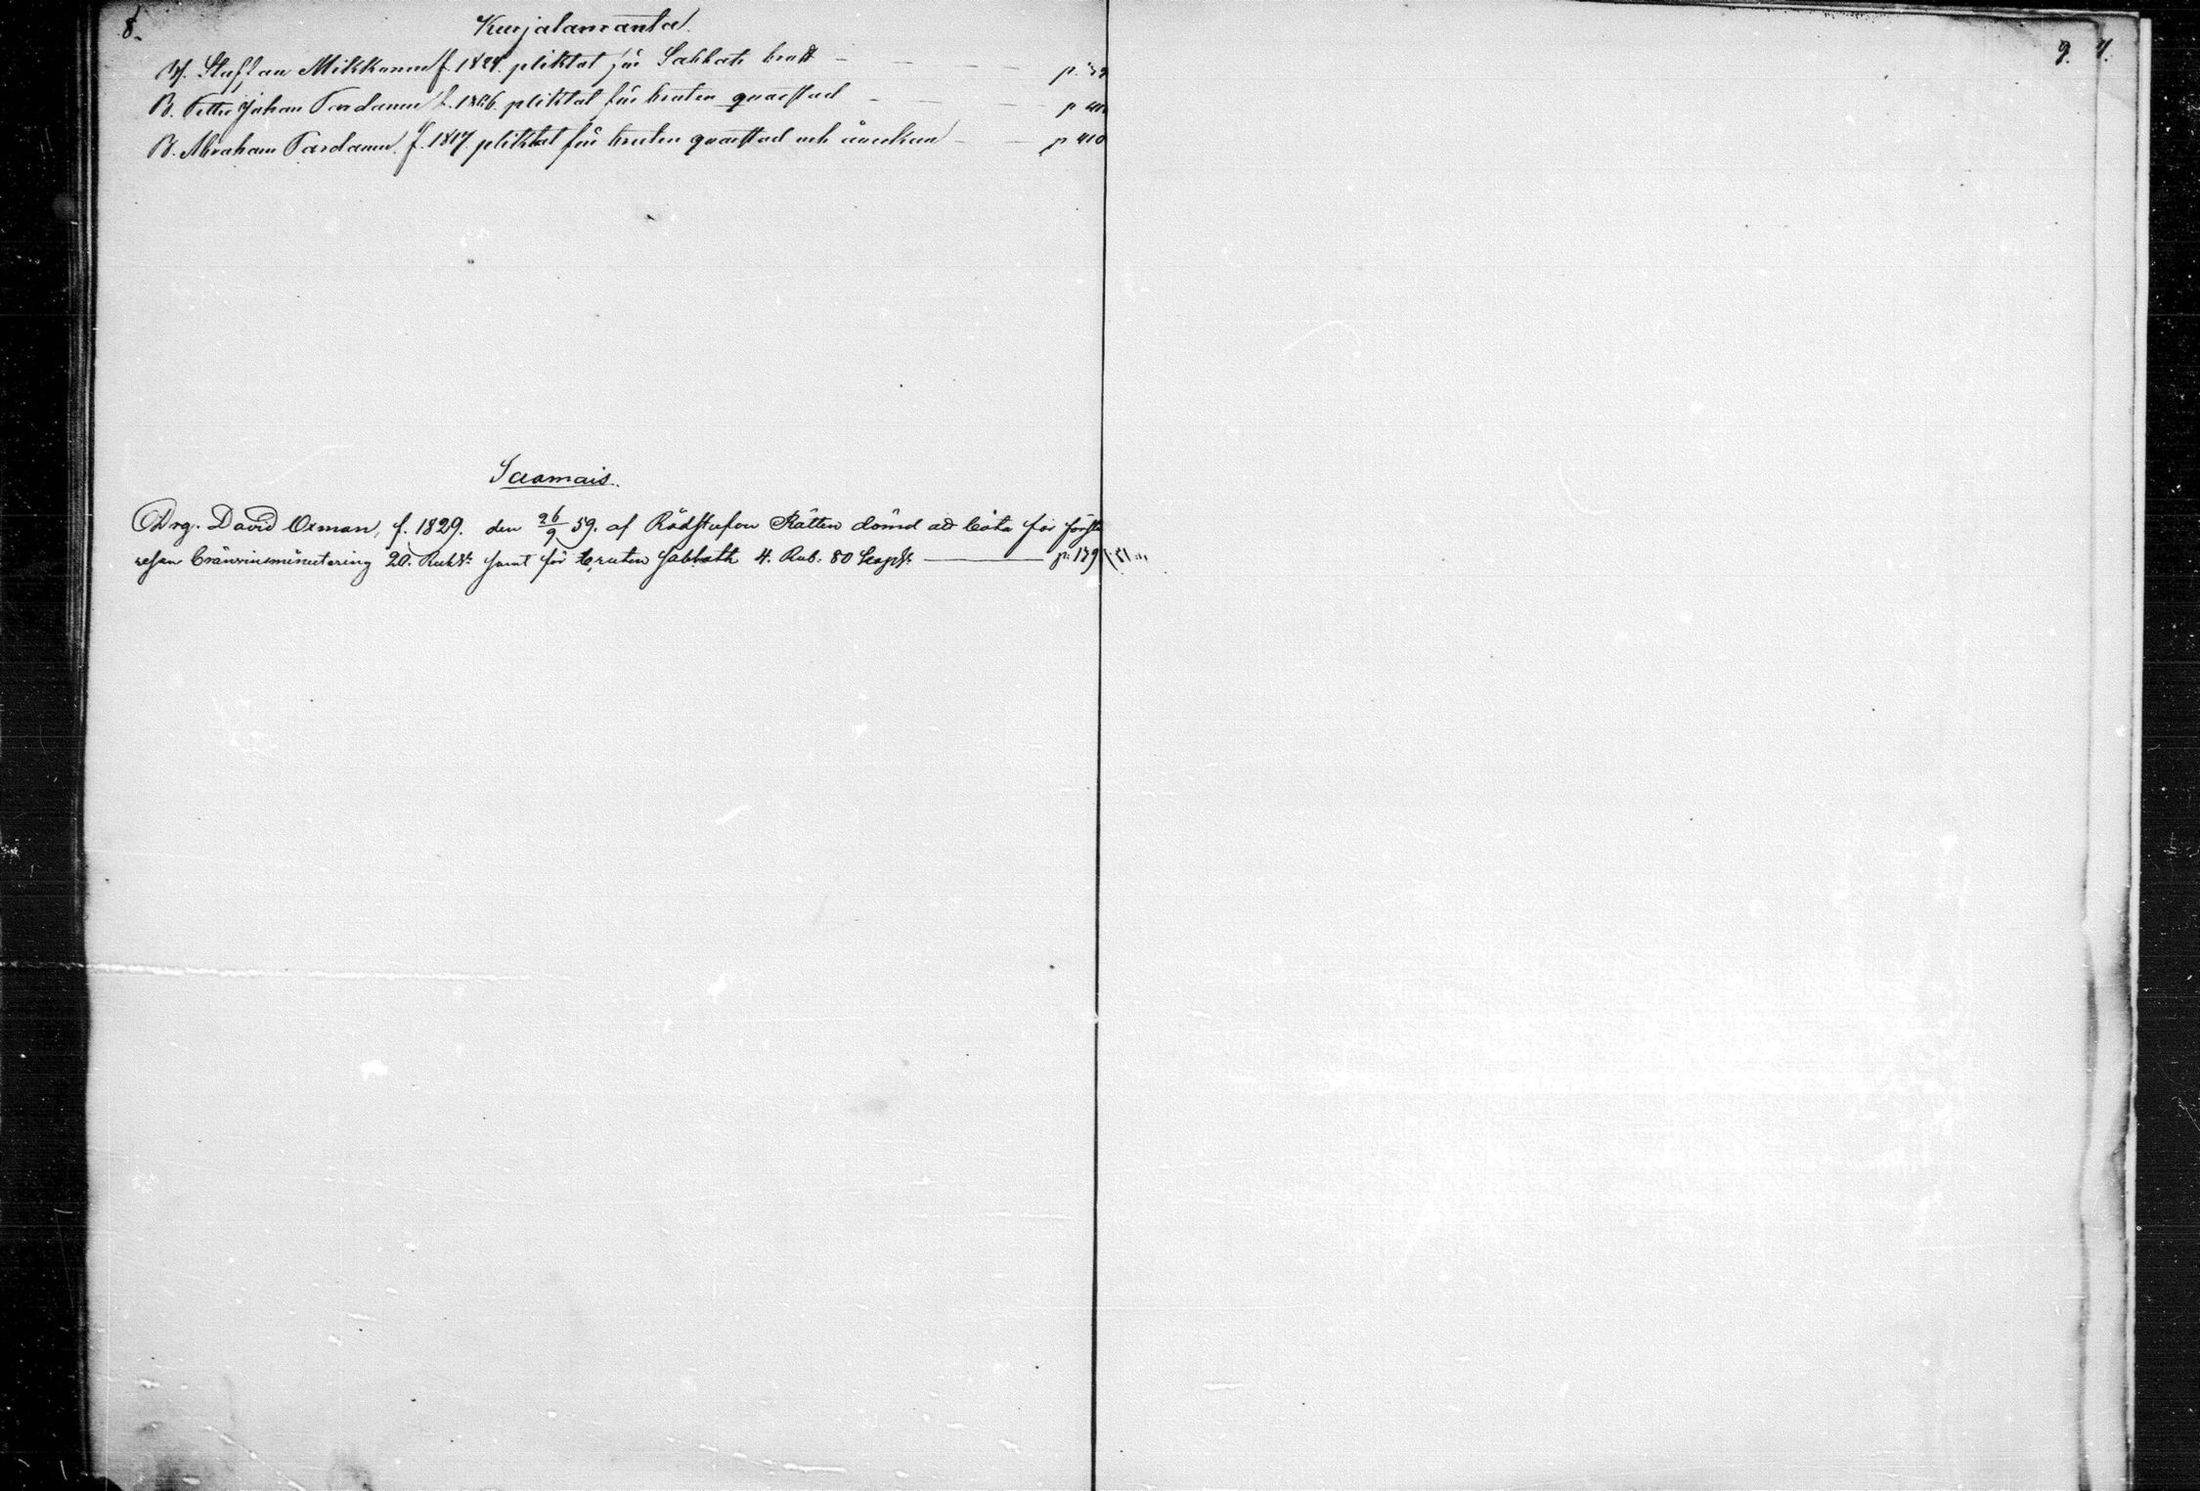 8.
Kurjalanranta
Staffan Mikkonen f. 1824. pliktat för Sabbats brott - - - - p.
B. Petter Johan Pardanen f. 1826. pliktat för bruten qvarstad - - - p
B. Abraham Pardanen. f. 1817 pliktat för bruten qvarstad och åverkan - - p 410
Saamais.
Drg. David Oxman, f. 1829. den 26/9 59. af Rådstufvu Rätten dömd at böta för första
resan bränvinsminutering 20. Rub Sr. samt för bruten sabbath 4. Rub. 80 kop Sr. p. 139
9. 7.